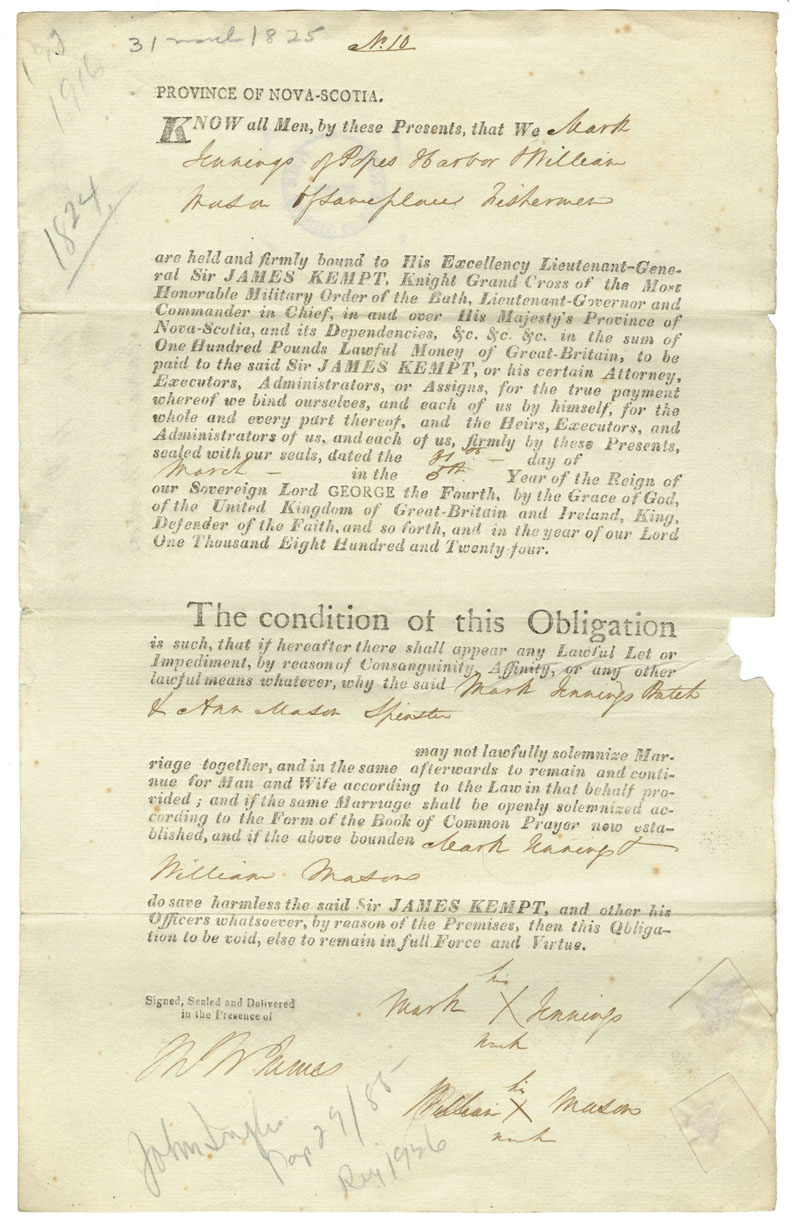 31 march 1825
No. 10
1916
1824
PROVINCE OF NOVA-SCOTIA.
KNOW all Men, by these Presents, that We Mark
Jennings of Popes Harbor & William
Mason of same place Fishermen
are held and firmly bound to His Excellency Lieutenant-Gene-
ral Sir JAMES KEMPT, Knight Grand Cross of the Most
Honorable Military Order of the Bath, Lieutenant-Governor and
Commander in Chief, in and over His Majesty's Province of
Nova-Scotia, and its Dependencies, &c. &c. &c. in the sum of
One Hundred Pounds Lawful Money of Great-Britain, to be
paid to the said Sir JAMES KEMPT, or his certain Attorney,
Executors, Administrators, or Assigns, for the true payment
whereof we bind ourselves, and each of us by himself, for the
whole and every part thereof, and the Heirs, Executors, and
Administrators of us, and each of us, firmly by these Presents,
sealed with our seals, dated the 31st day of
March in the 5th. Year of the Reign of
our Sovereign Lord GEORGE the Fourth, by the Grace of God,
of the United Kingdom of Great-Britain and Ireland, King,
Defender of the Faith, and so forth, and in the year of our Lord
One Thousand Eight Hundred and Twenty-four.
The condition of this Obligation
is such, that if hereafter there shall appear any Lawful Let or
Impediment, by reason of Consanguinity, Affinity, or any other
lawful means whatever, why the said Mark Jennings Batch
& Ann Mason Spinster
may not lawfully solemnize Mar-
riage together, and in the same afterwards to remain and conti-
nue for Man and Wife according to the Law in that behalf pro-
vided; and if the same Marriage shall be openly solemnized ac-
cording to the Form of the Book of Common Prayer now esta-
blished, and if the above bounden Mark Jennings &
William Mason
do save harmless the said Sir JAMES KEMPT, and other his
Officers whatsoever, by reason of the Premises, then this Obliga-
tion to be void, else to remain in full Force and Virtue.
Signed, Sealed and Delivered
in the Presence of
his
Mark X Jennings
mark
his
William X Mason
mark
John Inglis
Nov 29/85
Rex 1926